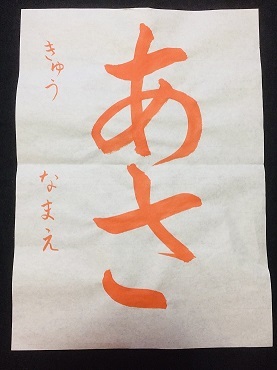 あさ
きゅう
なまえ